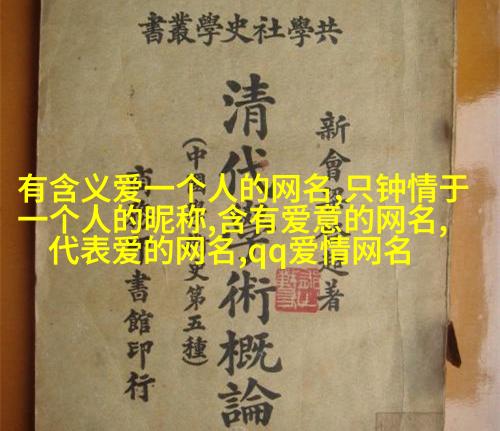 共學社史學叢書
新會 著
清代 術概論
(中國 史第五種)
書館印行
有含义爱一个人的网名,只钟情于
一个人的昵称,含有爱意的网名,
代表爱的网名,qq爱情网名